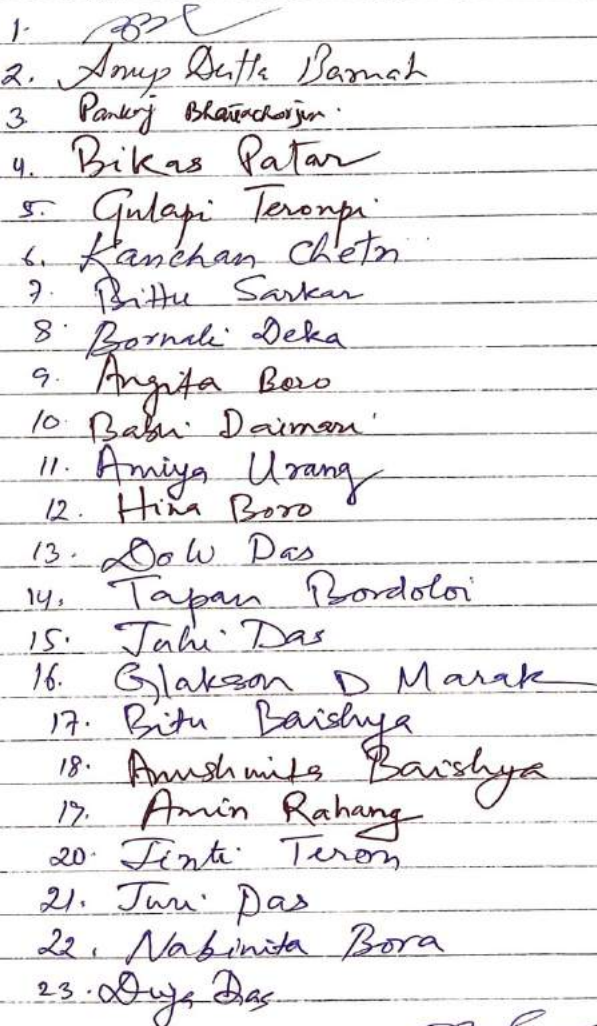 1.
2. Anup Dutta Barnah
3. Pankaj Bhattacharjee.
4. Bikas Patar
5. Gulapi Teronpi
6. Kanchan Chetri
7. Bittu Sarkar
8. Bornali Deka
9. Angita Boro
10. Babli Daimari
11. Amiya Urang
12. Hina Boro
13. Das
14. Tapan Bordoloi
15. Das
16. Glakson D Marak
17. Bitu Baishya
18. Anushmita Baishya
19. Amin Rahang
20. Jinti Teron
21. Juri Das
22. Nabinita Bora
23. Das